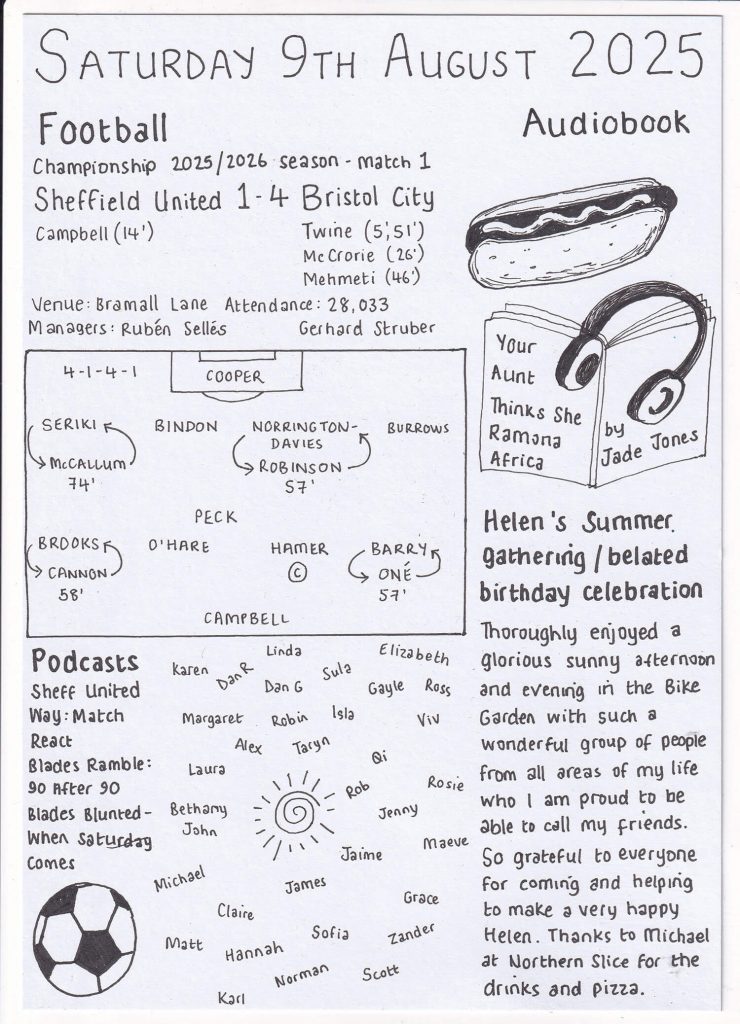 SATURDAY 9TH AUGUST 2025
Football
Championship 2025/2026 season - match 1
Sheffield United 1-4 Bristol City
Campbell (14') Twine (5',51')
McCrorie (26')
Mehmeti (46')
Venue: Bramall Lane Attendance: 28,033
Managers: Rubén Sellés Gerhard Struber
4-1-4-1
COOPER
SERIKI BINDON NORRINGTON-
DAVIES BURROWS
McCALLUM
74'
ROBINSON
57'
PECK
BROOKS O'HARE HAMER BARRY
CANNON
58'
C
ONÉ
57'
CAMPBELL
Podcasts
Sheff United
Way: Match
React
Blades Ramble:
90 After 90
Blades Blunted-
When Saturday
Comes
Linda
Karen
Dan R
Elizabeth
Sula
Dan G
Gayle
Ross
Margaret
Robin
Isla
Viv
Alex
Taryn
Qi
Laura
Rob
Rosie
Bethany
John
Jenny
Jaime
Maeve
Michael
James
Grace
Claire
Matt
Hannah
Sofia
Zander
Norman
Scott
Karl
Audiobook
Your
Aunt
Thinks She
Ramona
Africa
by
Jade Jones
Helen's Summer
gathering/belated
birthday celebration
Thoroughly enjoyed a
glorious sunny afternoon
and evening in the Bike
Garden with such a
wonderful group of people
from all areas of my life
who I am proud to be
able to call my friends.
So grateful to everyone
for coming and helping
to make a very happy
Helen. Thanks to Michael
at Northern Slice for the
drinks and pizza.